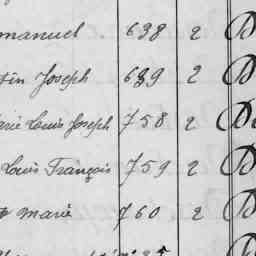 manuel 638 2 D
tin Joseph 639 2 D
arie Louis Joseph 758 2 D
Louis François 759 2 D
marie 760 2 D